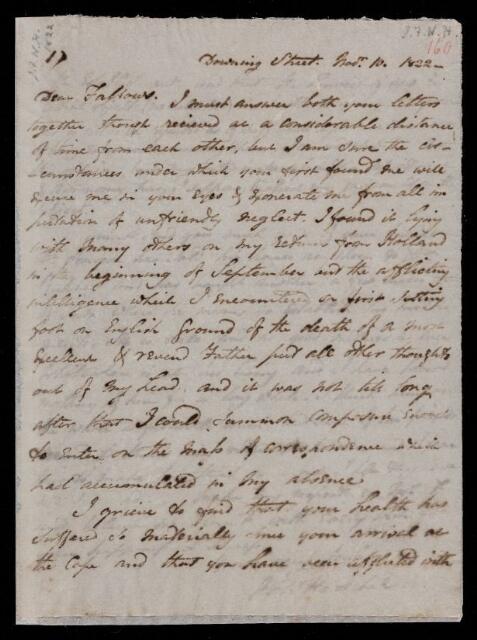 J.F.W.H.
160
J.F.W.H.
1822
17
Downing Street. Novr. 10. 1822 —
Dear Fallows. I must answer both your letters
together though received at a considerable distance
of time from each other, but I am sure the cir-
-cumstances under which your first found me will
excuse me in your Eyes & exonerate me from all im
putation of unfriendly neglect. I found it lying
with many others on my return from Holland
in the beginning of September and the afflicting
intelligence which I encountered on first setting
foot on English Ground of the death of a most
Excellent & revered Father put all other thoughts
out of my head and it was not till long
after that I could summon composure enough
to enter on the mass of correspondence which
had accumulated in my absence
I grieve to find that your health has
suffered so materially since your arrival at
the Cape and that you have been afflicted with